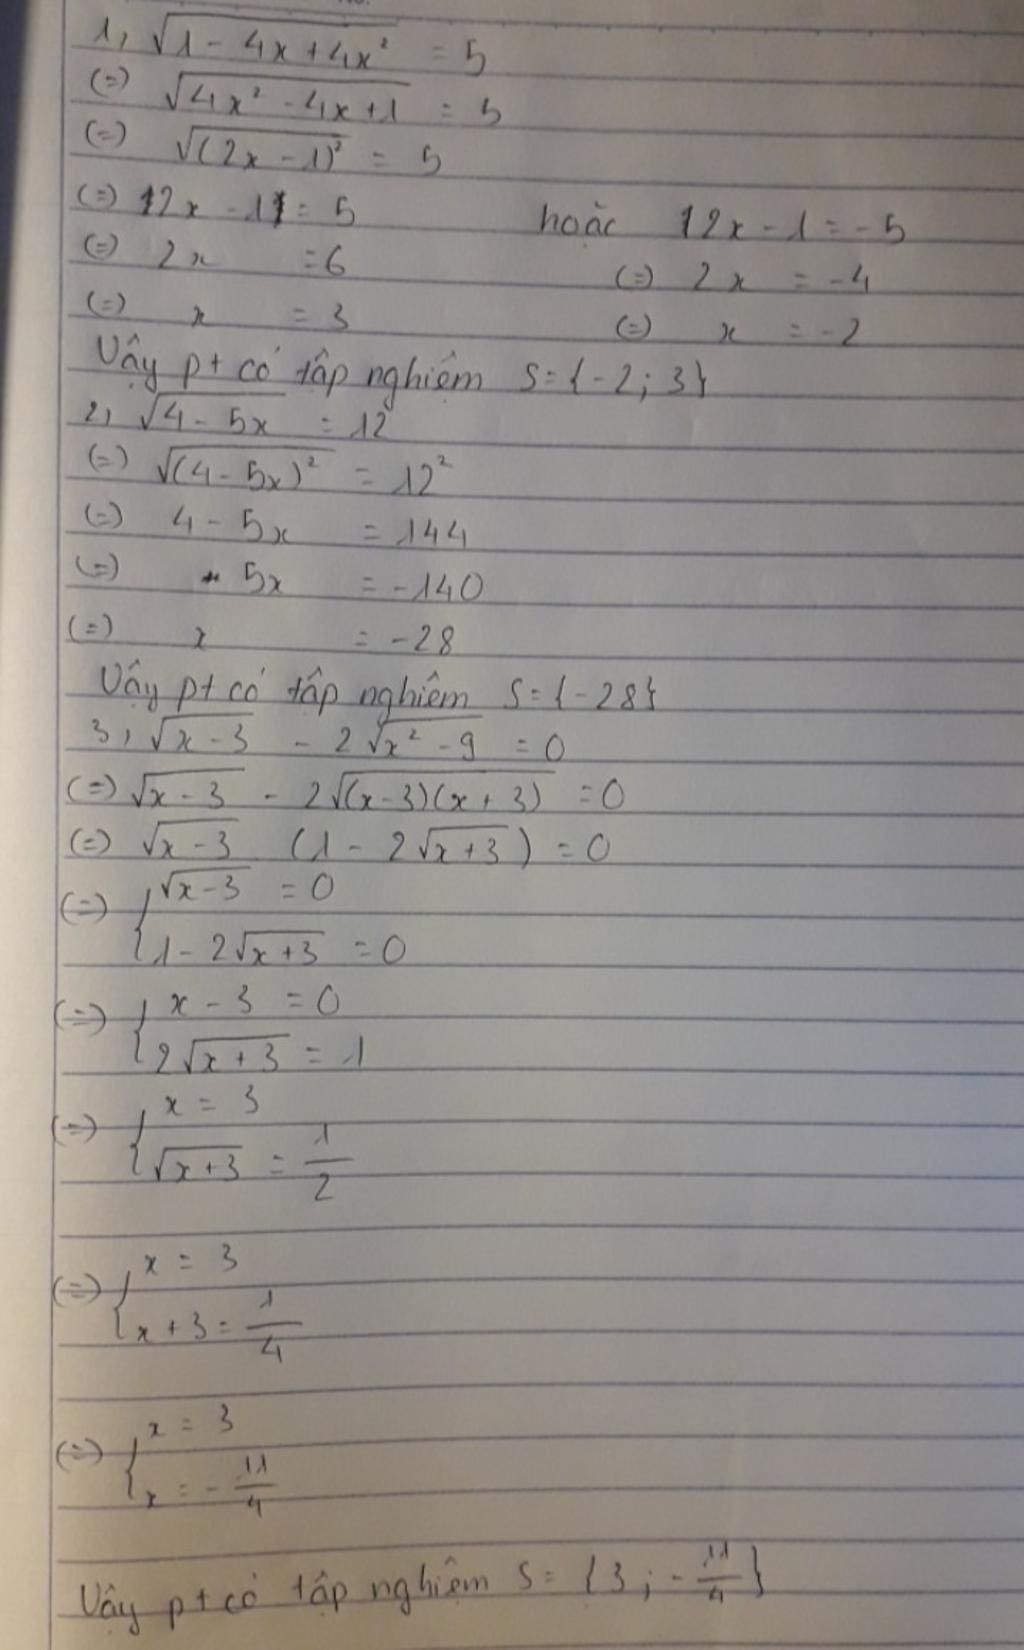 1, √(1 - 4x + 4x²) = 5
(=) √(4x² - 4x + 1) = 5
(=) √((2x - 1)²) = 5
(=) |2x - 1| = 5 hoặc |2x - 1 = -5
(=) 2x = 6 (=) 2x = -4
(=) x = 3 (=) x = -2
Vậy pt có tập nghiệm S = {-2; 3}
2, √(4 - 5x) = 12
(=) √((4 - 5x)²) = 12²
(=) 4 - 5x = 144
(=) 5x = -140
(=) x = -28
Vậy pt có tập nghiệm S = {-28}
3, √(x - 3) - 2√(x² - 9) = 0
(=) √(x - 3) - 2√((x - 3)(x + 3)) = 0
(=) √(x - 3) (1 - 2√(x + 3)) = 0
(=) { √(x - 3) = 0
1 - 2√(x + 3) = 0
(=) { x - 3 = 0
2√(x + 3) = 1
(=) { x = 3
√(x + 3) = 1/2
(=) { x = 3
x + 3 = 1/4
(=) { x = 3
x = -11/4
Vậy pt có tập nghiệm S = {3; -11/4}